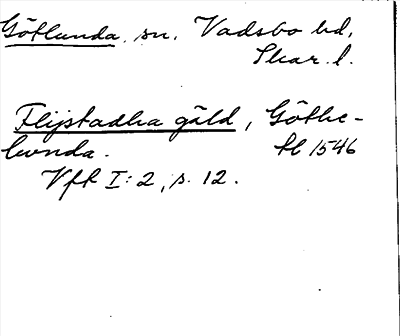 Götlunda, sn. Vadsbo hd,
Skar. l.
Flijstadha gäld, Göthe-
lunda. tl 1546
VFT I:2, s. 12.